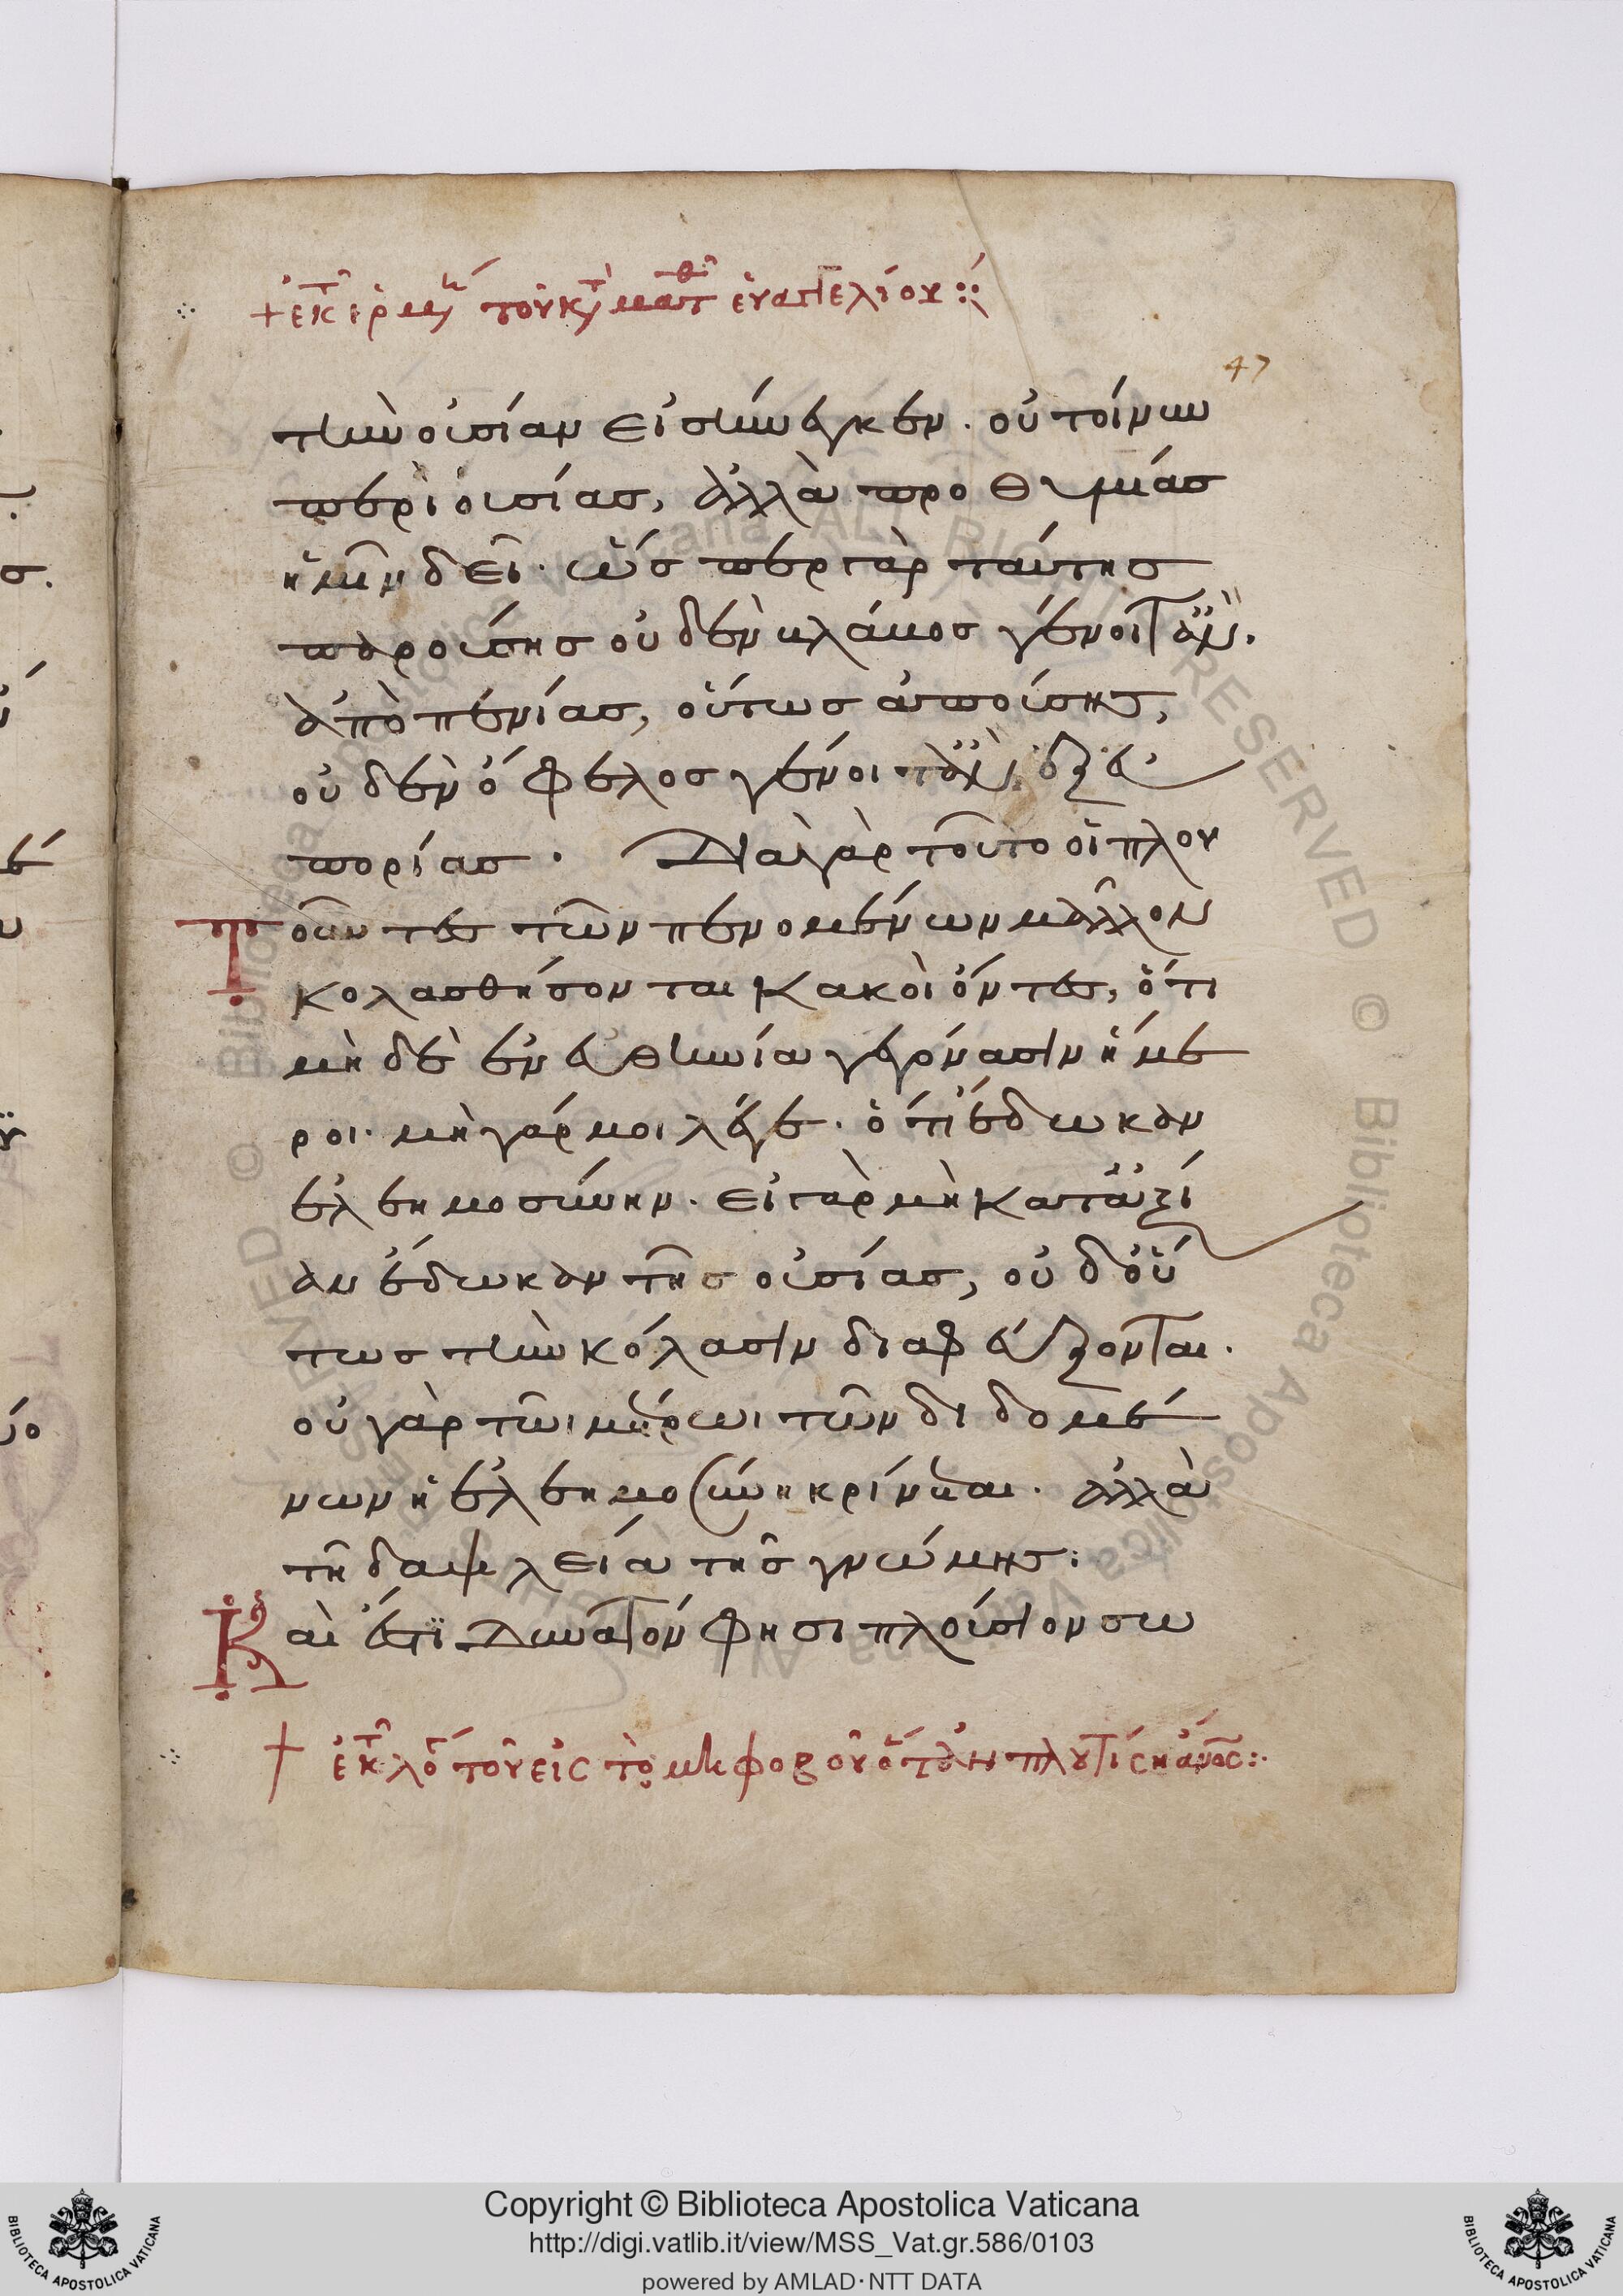 + ἐκ τ ἑρμ τοῦ κτ ματθ εὐαγγελίου ::
47
τὴν οὐσίαν εἰσήνεγκεν. οὐ τοίνυν
περὶ οὐσίας, ἀλλὰ προθυμίας
ἡμῖν δεῖ. ὥσπερ γὰρ ταύτης
παρούσης οὐδὲν βλάβος γένοιτ ἂν
ἀπὸ πενίας, οὕτως ἀπούσης,
οὐδὲν ὄφελος γένοιτ ἂν ἐξ εὐ
πορίας. Διὰ γὰρ τοῦτο οἱ πλου
Τοῦντες τῶν πενομένων μᾶλλον
κολασθήσονται κακοὶ ὄντες, ὅτι
μηδὲ ἐν εὐθηνία γεγόνασιν ἥμε
ροι. μὴ γάρ μοι λέγε. ὅτι ἔδωκαν
ἐλεημοσύνην. εἰ γὰρ μὴ κατ ἀξί
αν ἔδωκαν τῆς οὐσίας, οὐδ οὕ
τως τὴν κόλασιν διαφεύξονται.
οὐ γὰρ τῶι μέτρωι τῶν διδομέ
νων ἡ ἐλεημοσύνη κρίνεται. ἀλλὰ
τῆ δαψιλεία τῆς γνώμης:
Καὶ ἔτι Δυνατόν φησι πλούσιον ὄν
+ ἐκ τ λό τοῦ εἰς τὸ μὴ φοβοῦ ὅταν πλουτίση ἄνος :.
Copyright © Biblioteca Apostolica Vaticana
http://digi.vatlib.it/view/MSS_Vat.gr.586/0103
powered by AMLAD·NTT DATA
BIBLIOTECA APOSTOLICA VATICANA
BIBLIOTECA APOSTOLICA VATICANA